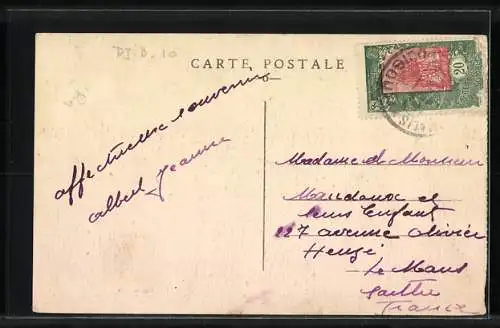 DJ. B. 10
CARTE POSTALE
20
affectueux souvenir
albert Jeanne
Madame et Monsieur
Mandoux et
leurs Enfant
127 avenue Olivier
Heuzé
Le Mans
Sarthe
France